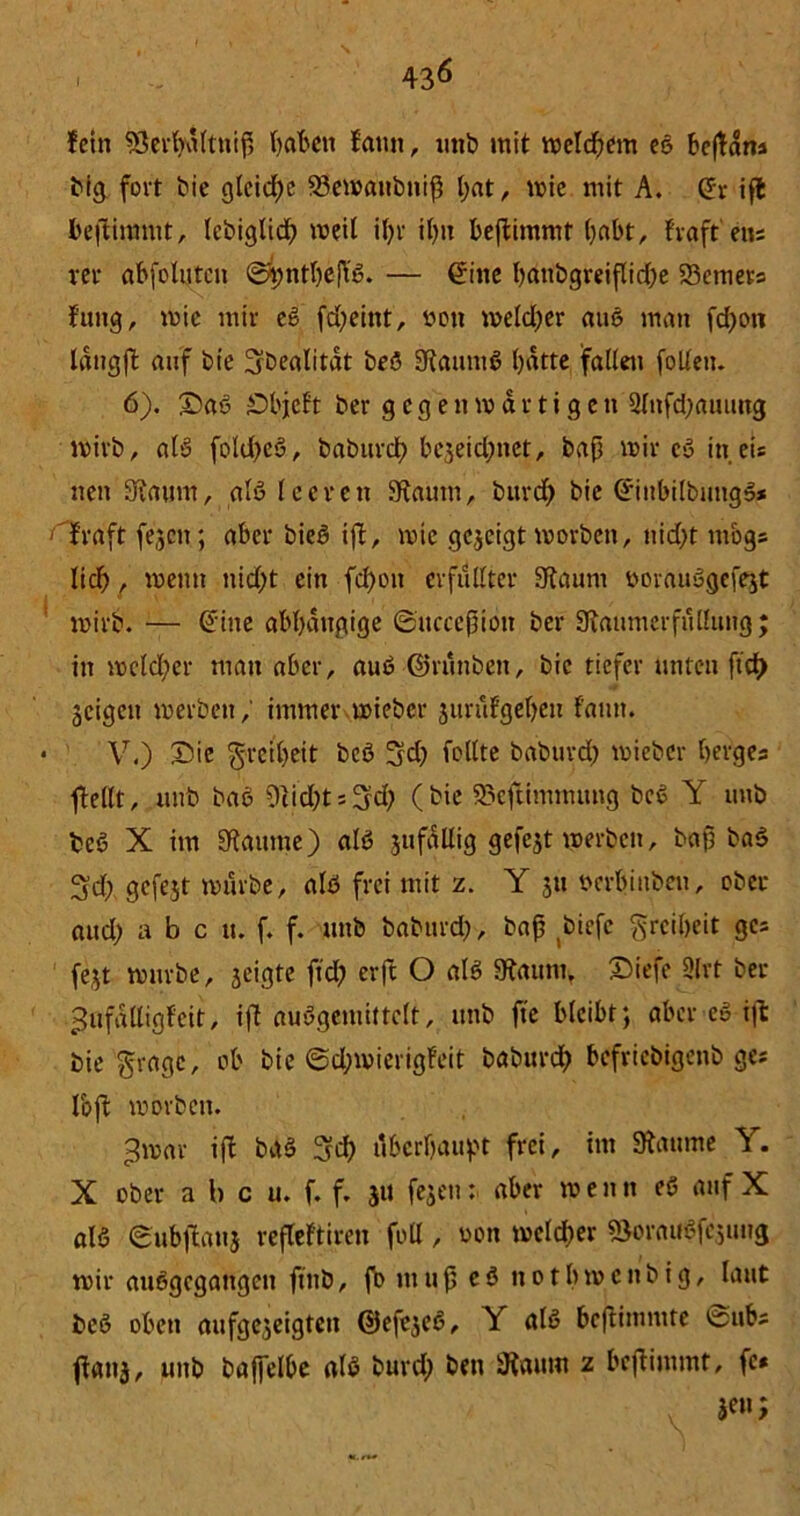 436
kein Verhältniß haben kann, und mit welchem es bestän-
dig fort die gleiche Bewandniß hat, wie mit A. Er ist
bestimmt, lediglich weil ihr ihn bestimmt habt, kraft eu-
rer absoluten Synthesis. — Eine handgreifliche Bemer-
kung, wie mir es scheint, von welcher aus man schon
längst auf die Idealität des Raums hätte fallen sollen.
6). Das Objekt der gegenwärtigen Anschauung
wird, als solches, dadurch bezeichnet, daß wir es in ei-
nen Raum, als leeren Raum, durch die Einbildungs-
kraft sezen; aber dies ist, wie gezeigt worden, nicht mög-
lich, wenn nicht ein schon erfüllter Raum vorausgesezt
wird. — Eine abhängige Succeßion der Raumerfüllung;
in welcher man aber, aus Gründen, die tiefer unten sich
zeigen werden, immer wieder zurükgehen kann.
V.) Die Freiheit des Ich sollte dadurch wieder herge-
stellt, und das Nicht-Ich (die Bestimmung des Y und
des X im Raume) als zufällig gesezt werden, daß das
Ich gesezt würde, als frei mit z. Y zu verbinden, oder
auch a b c u. s. f. und dadurch, daß diese Freiheit ge-
sezt wurde, zeigte sich erst O als Raum. Diese Art der
Zufälligkeit, ist ausgemittelt, und sie bleibt; aber es ist
die Frage, ob die Schwierigkeit dadurch befriedigend ge-
löst worden.
Zwar ist das Ich überhaupt frei, im Raume Y.
X oder a b c u. s. f. zu sezen: aber wenn es auf X
als Substanz reflektiren soll, von welcher Voraussezung
wir ausgegangen sind, so muß es nothwendig, laut
des oben aufgezeigten Gesezes, Y als bestimmte Sub-
stanz, und dasselbe als durch den Raum z bestimmt, se-
zen;